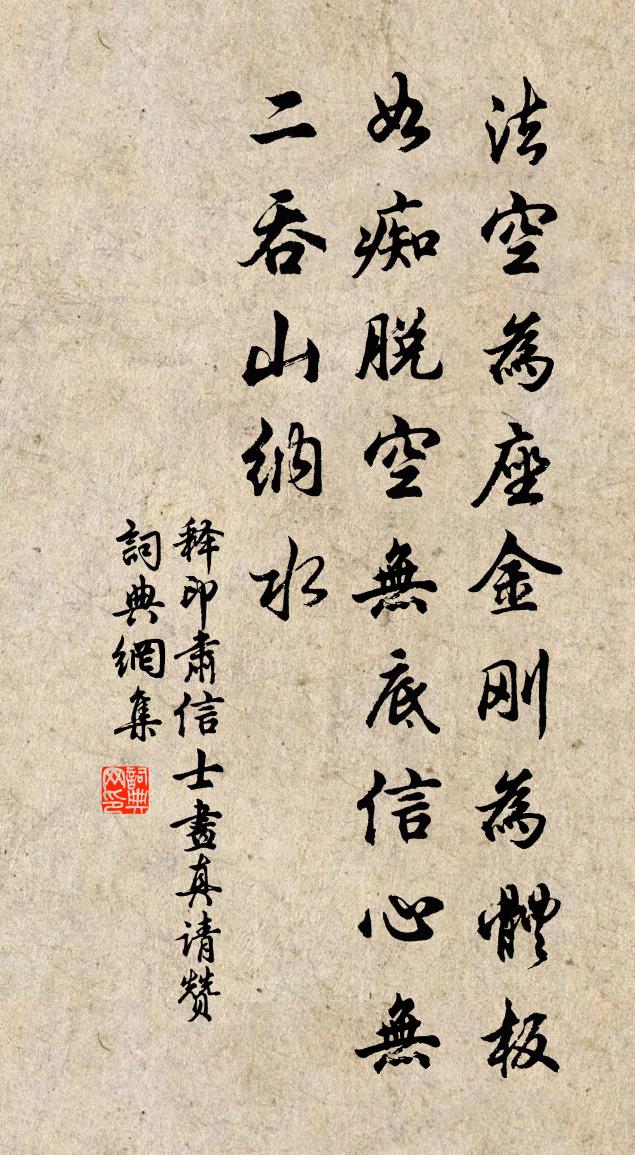 法空為座金刚為體板
如痴脱空無底信心無
二吞山納水
释印肃信士畫真请赞
詞典網集
詞典网印